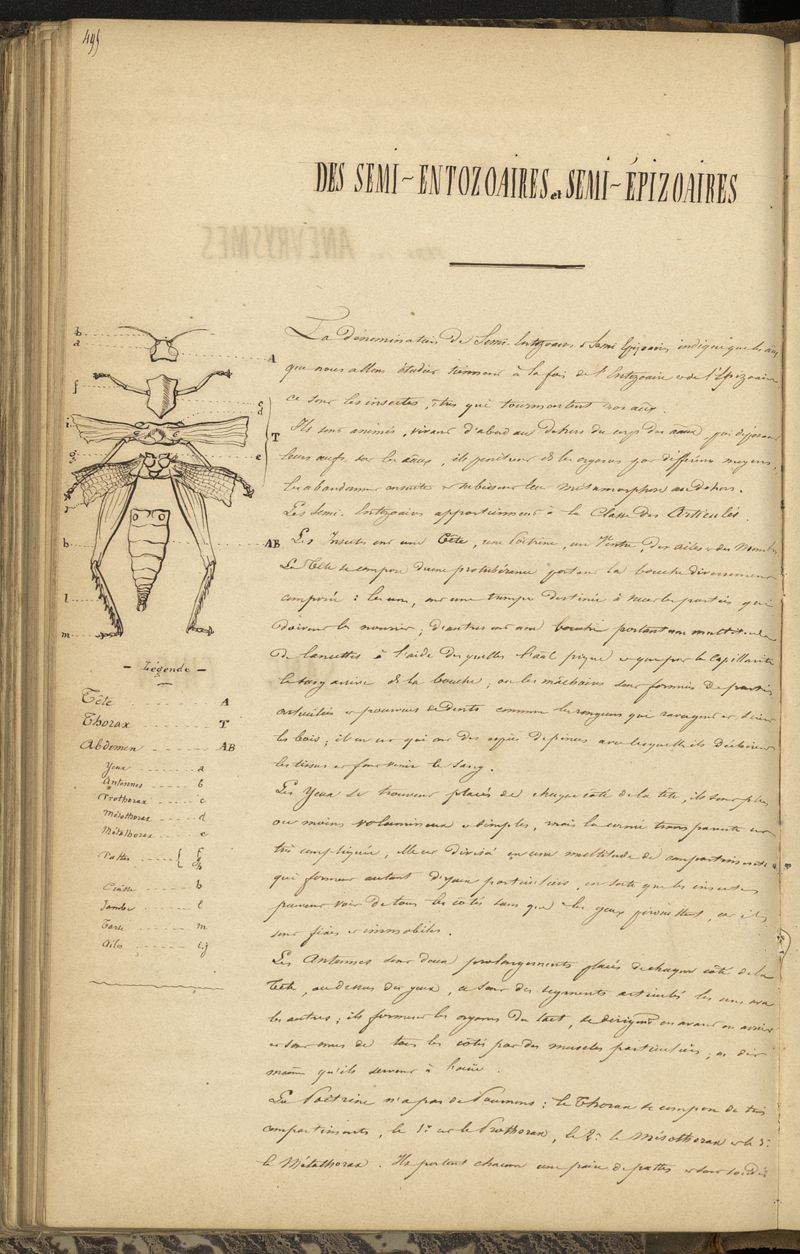 495
DES SEMI~ENTOZOAIRES et SEMI~ÉPIZOAIRES
La dénomination de Semi-Entozoaires et Semi Epizoaires indique que les
que nous allons étudier tiennent à la fois de l'Entozoaire et de l'Epizoaire
ce sont les insectes, êtres qui tourmentent nos aux.
Ils sont animés, vivant d'abord au dehors du corps des aux, déposent
leurs œufs sur les aux, ils pénètrent ds les organes par différens moyens,
les abandonnent ensuite et subissent leur métamorphose au dehors.
Les Semi-Entozoaires appartiennent à la Classe des Articulés.
Les Insectes ont une Tête, une Poitrine, un Ventre, des ailes et des Membres
La Tête se compose d'une protubérance portant la bouche diversement
composée : les uns, ont une trompe destinée à sucer les parties qui
doivent les nourrir ; d'autres ont une bouche portant une multitude
de lancettes à l'aide desquelles l'aal pique et que par la Capillarité
le sang arrive ds la bouche ; ou les mâchoires sont formées de parties
articulées et pourvues de dents comme les rongeurs qui ravagent et
les bois ; il en est qui ont des espèces de pinces avec lesquelles ils déchirent
les tissus et font venir le sang.
Les Yeux se trouvent placés de chaque côté de la tête, ils sont plus
ou moins volumineux et simples, mais la cornée transparente est
très compliquée, elle est divisée en une multitude de compartiments
qui forment autant d'yeux particuliers, en sorte que les insectes
peuvent voir de tous les côtés sans que les yeux pirouettent, car ils
sont fixes et immobiles.
Les Antennes sont deux prolongements placés de chaque côté de la
Tête, au dessus des yeux, ce sont des segments articulés les uns avec
les autres ; ils forment les organes du tact, se dirigent en avant en arrière
et sont mus de tous les côtés par des muscles particuliers ; on dit
même qu'ils servent à l'ouïe.
La Poitrine n'a pas de Poumons : le Thorax se compose de trois
compartiments, le 1er est le Prothorax, le 2e le Mésothorax et le 3e
le Métathorax. Ils portent chacun une paire de pattes et sont soudés
b
a
A
f
c
d
i
T
g
e
j
h
AB
l
m
- Légende -
Tête A
Thorax T
Abdomen AB
Yeux a
Antennes b
Prothorax c
Mésothorax d
Métathorax e
Pattes { f g h
Cuisse h
Jambe l
Tarse m
Ailes i.j